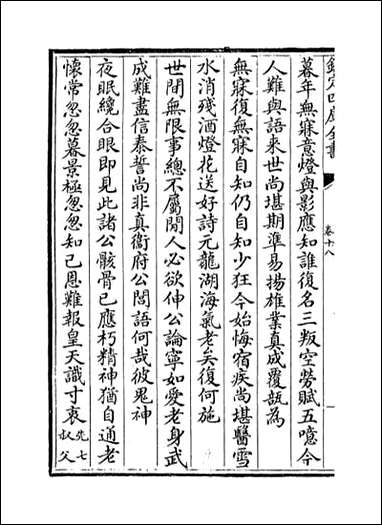 欽定四庫全書
卷十八
暮年無寐意燈與影應知誰復名三叛空勞賦五噫今
人難與語来世尚堪期準易揚雄業真成覆瓿為
無寐復無寐自知仍自知少狂今始悔宿疾尚堪醫雪
水消殘酒燈花送好詩元龍湖海氣老矣復何施
世間無限事總不屬閒人必欲伸公論寧如愛老身武
成難盡信秦誓尚非真衛府公閎語何哉彼鬼神
夜眠纔合眼即見此諸公骸骨已應朽精神猶自通老
懷常忽忽暮景極忽忽知己恩難報皇天識寸衷
先七
叔父